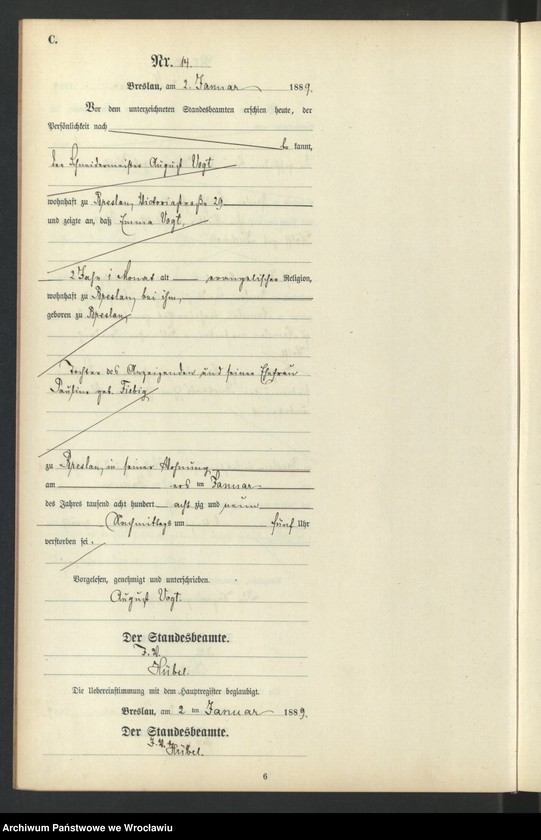 C.
Nr. 14.
Breslau, am 2. Januar 1889.
Vor dem unterzeichneten Standesbeamten erschien heute, der
Persönlichkeit nach
be kannt,
der Schneidermeister August Vogt
wohnhaft zu Breslau, Victoriastraße 29
und zeigte an, daß Emma Vogt,
2 Jahr 1 Monat alt evangelischer Religion,
wohnhaft zu Breslau, bei ihm,
geboren zu Breslau,
Tochter des Anzeigenden und seiner Ehefrau
Pauline geb. Fiebig
zu Breslau, in seiner Wohnung
am ersten Januar
des Jahres tausend acht hundert achtzig und neun
Nachmittags um fünf Uhr
verstorben sei.
Vorgelesen, genehmigt und unterschrieben.
August Vogt.
Der Standesbeamte.
J. V.
Hübel.
Die Uebereinstimmung mit dem Hauptregister beglaubigt.
Breslau, am 2 ten Januar 1889.
Der Standesbeamte.
J. V. Hübel.
6
Archiwum Państwowe we Wrocławiu